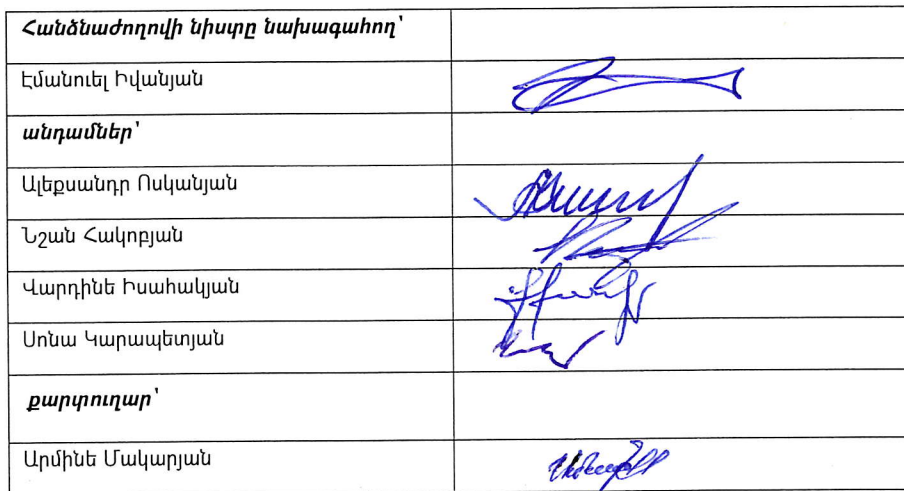 Հանձնաժողովի նիստը նախագահող՝
Էմանուել Իվանյան
անդամներ՝
Ալեքսանդր Ոսկանյան
Նշան Հակոբյան
Վարդինե Իսահակյան
Սոնա Կարապետյան
քարտուղար՝
Արմինե Մակարյան